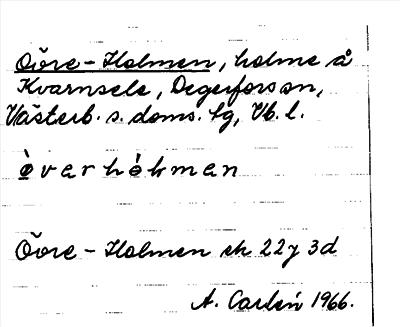 Övre-Holmen, holme å
Kvarnsele, Degerfors sn,
Västerb. s. doms. lg, Vb. l.
òvarhòkman
Övre-Holmen ek 22 J 3d
A. Carlén 1966.